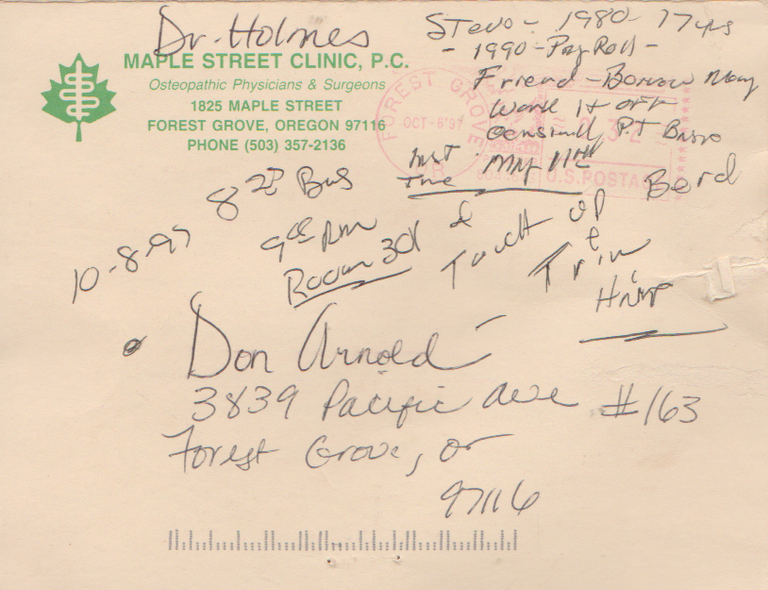 Dr. Holmes
MAPLE STREET CLINIC, P.C.
Osteopathic Physicians & Surgeons
1825 MAPLE STREET
FOREST GROVE, OREGON 97116
PHONE (503) 357-2136
FOREST GROVE
OCT-6'97
U.S. POSTAGE
Steve - 1980 - 17 yrs
- 1990 - Pay Roll -
Friend - Borrow Money
Work it off
P.T Basis
Last Time
Beard
Touch up
&
Trim
Hair
8 20 Bus
9 00 Am
Room 301
10-8-97
Don Arnold
3839 Pacific Ave #163
Forest Grove, Or
97116